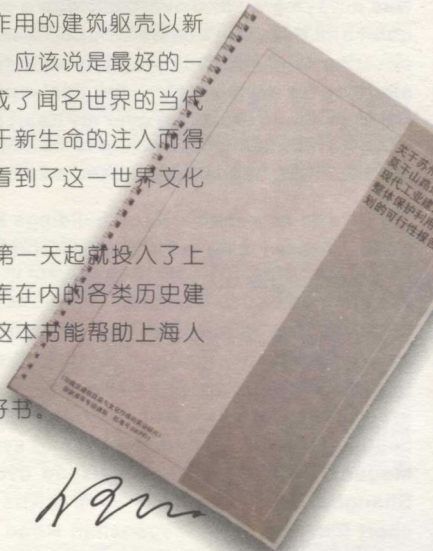 作用的建筑躯壳以新
应该说是最好的一
成了闻名世界的当代
于新生命的注入而得
看到了这一世界文化
第一天起就投入了上
库在内的各类历史建
这本书能帮助上海人
好书。
关于苏州
莫干山路
现代工业建
整体保护利用
划的可行性报告